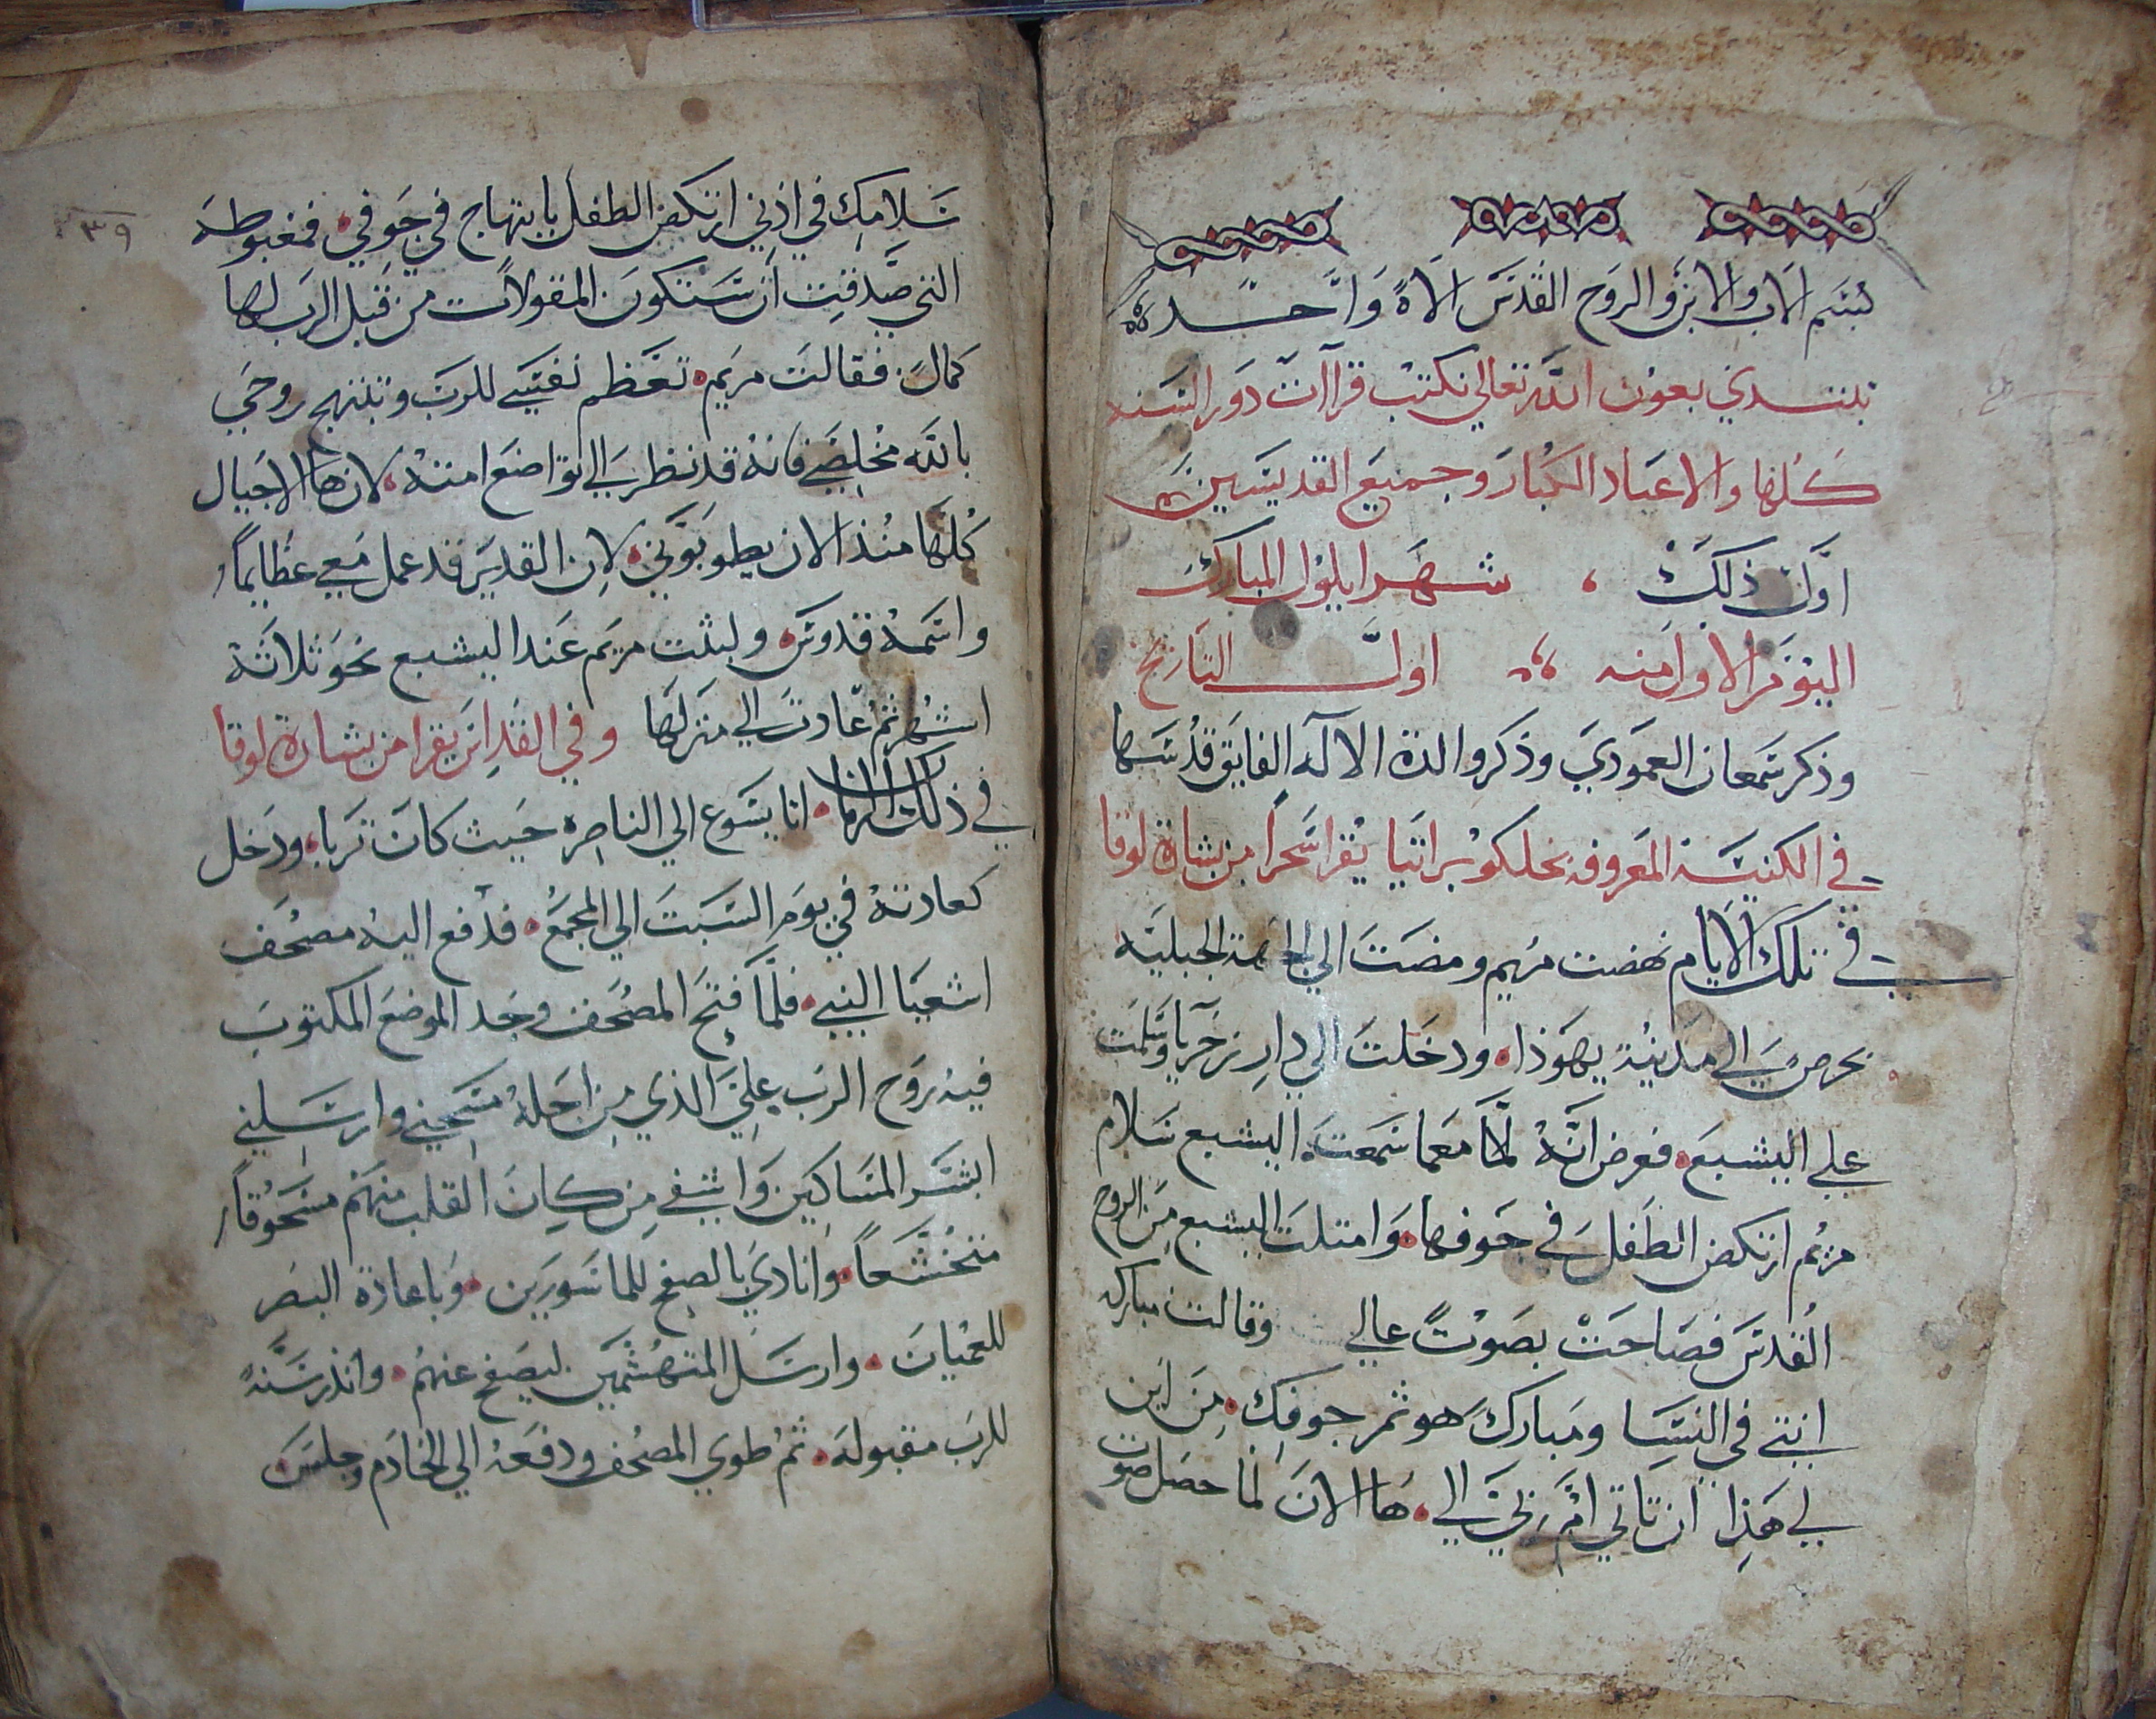 بسم الاب والابن والروح القدس الاهً واحــد
نبتــدي بعون الله تعالي نكتب قراآت دور السنه
كلها والاعياد الكبار وجميع القديسين
اوَّل ذلك ، شهر ايلول المبارك
اليوم الاول منه اول التاريخ
وذكر سمعان العمودي وذكر والدة الالآه الفايق قدسها
في الكنيسة المعروفه بخلكوبراتيا يُقرا سَحراً من بشارة لوقا
في تلك الايام نهضت مريم ومضت الي الجبليه
بحرص الي مدينة يهوذا ودخلت الي دار زخريا وسلمت
علي اليشبع فعرض انَّهُ لمَّا معما سمعت اليشبع سلام
مريم ارتكض الطفل في جوفها وامتلت اليشبع من الروح
القدس فصاحت بصوتً عالي وقالت مباركه
انتي في النسا ومبارك هو ثمر جوفك من اين
لي هذا ان تاتي امّ ربي الي ها الان لما حصل صوت
سلامك في اذني ارتكض الطفل بابتهاج في جوفي فمغبوطه
التي صدقت ان ستكون المقولات من قبل الرب لها
كمال فقالت مريم تعظم نفسي للرب وتبتهج روحي
بالله مخلصي فانهُ قد نظر الي تواضع امتهُ لان ها الاجيال
كلها منذ الان يطوبوني لان القدير قد عمل معي عظايماً
واسمهُ قدوس ولبثت مريم عند اليشبع نحو ثلاثة
اشهر ثم عادت الي منزلها وفي القداس يقرا من بشارة لوقا
في ذلك الزمان اتا يسوع الي الناصره حيث كان تربا ودخل
كعادتهُ في يوم السبت الي المجمع فدفع اليهُ مصحف
اشعيا النبي فلمَّا فتح المصحف وجد الموضع المكتوب
فيه روح الرب علي الذي من اجله مسحني وارسلني
ابشر المساكين واشفي من كان القلب منهم مسحوقاً
متخشعاً وانادي بالصفح للماسورين وباعادة البصر
للعميان وارسل المتهشمين ليصفح عنهم وانذر سنةً
للرب مقبوله ثم طوي المصحف ودفعهُ الي الخادم وجلس
٣٩